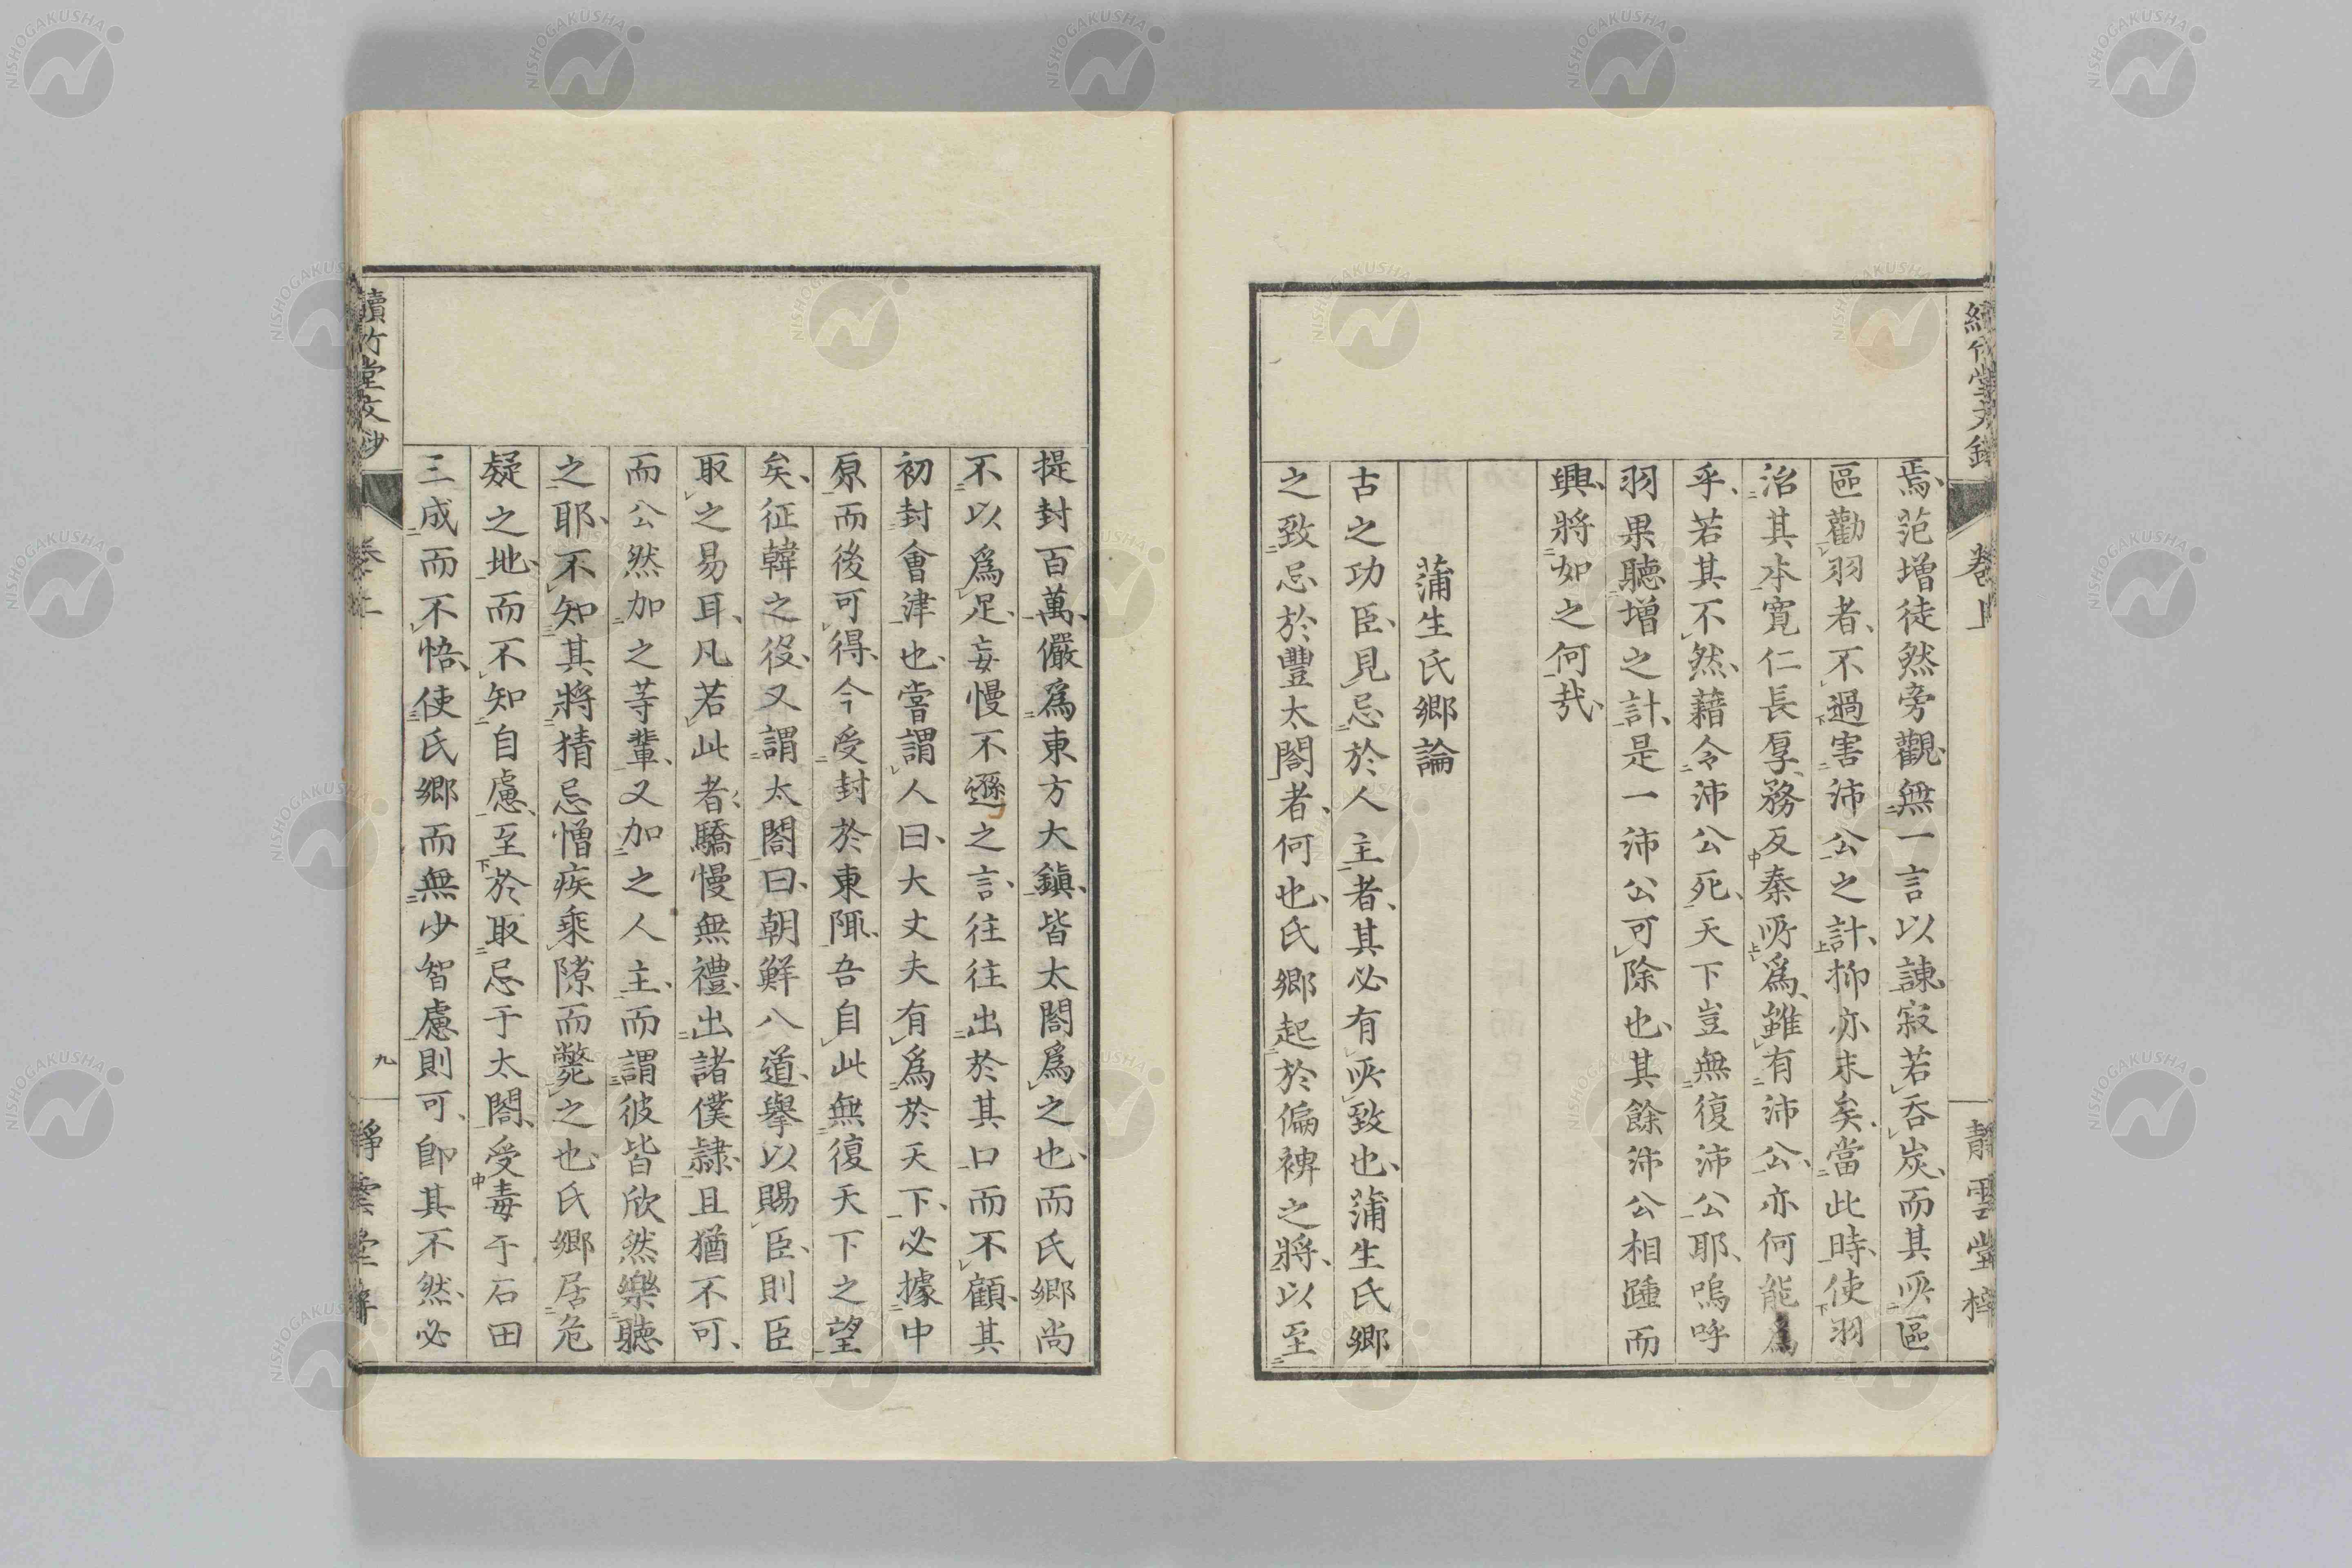 焉、范増徒然旁觀、無一言以諫、寂若呑炭、而其所區
區勸羽者、不過害沛公之計、抑亦末矣、當此時、使羽
治其本寛仁長厚、務反秦所爲、雖有沛公、亦何能爲
乎、若其不然、藉令沛公死、天下豈無復沛公耶、嗚呼
羽果聽増之計、是一沛公可除也、其餘沛公相踵而
興、將如之何哉、
蒲生氏郷論
古之功臣、見忌於人主者、其必有所致也、蒲生氏郷
之致忌於豐太閤者、何也、氏郷起於偏裨之將、以至
卷上
靜雲堂梓
提封百萬、儼爲東方大鎭、皆太閤爲之也、而氏郷尚
不以爲足、妄慢不遜之言、往往出於其口而不顧、其
初封會津也、嘗謂人曰、大丈夫有爲於天下、必據中
原而後可得、今受封於東陬、吾自此無復天下之望
矣、征韓之役、又謂太閤曰、朝鮮八道、擧以賜臣、則臣
取之易耳、凡若此者、驕慢無禮、出諸僕隷、且猶不可、
而公然加之等輩、又加之人主、而謂彼皆欣然樂聽
之耶、不知其將猜忌憎疾乘隙而斃之也、氏郷居危
疑之地、而不知自慮、至於取忌于太閤、受毒于石田
三成而不悟、使氏郷而無少智慮則可、卽其不然、必
讀竹堂文鈔
九
靜雲堂梓